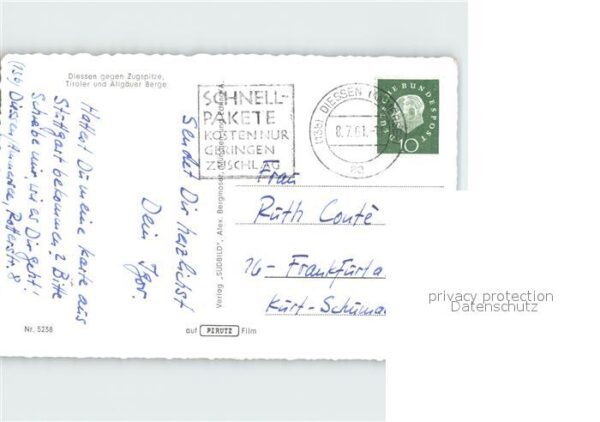 Diessen gegen Zugspitze,
Tiroler und Allgäuer Berge
Hattest Du meine Karte aus
Stuttgart bekommen? Bitte
Schreibe mir, wie es Dir geht!
(13b) Diessen/Ammersee, Rotterstr. 8
Sendet Dir herzlichst
Dein Igor.
Nr. 5238
Verlag „SÜDBILD", Alex. Bergmoser,
auf PERUTZ Film
SCHNELL-
PAKETE
KOSTEN NUR
GERINGEN
ZUSCHLAG
(13b) DIESSEN
8.7.61.
DEUTSCHE BUNDESPOST
10
Frau
Ruth Conté
16 - Frankfurt a
Kurt-Schuma
privacy protection
Datenschutz